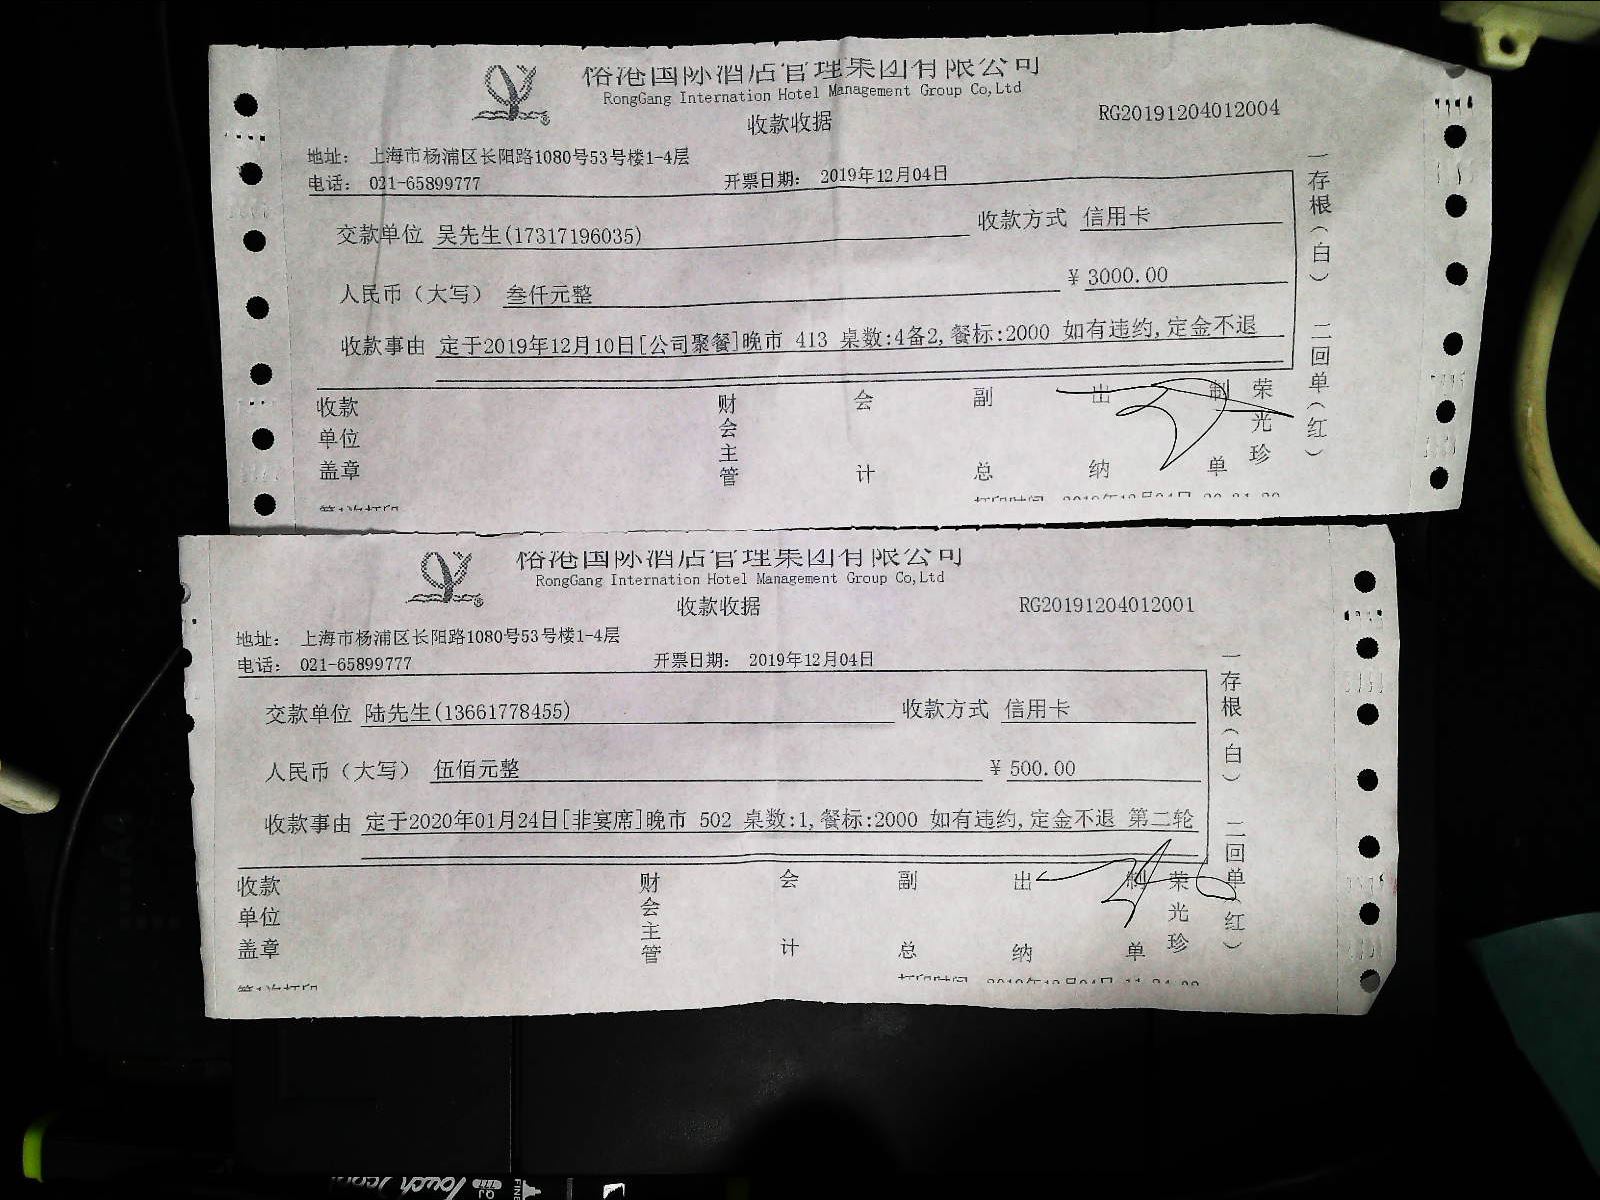 榕港国际酒店管理集团有限公司
RongGang Internation Hotel Management Group Co,Ltd
收款收据
RG20191204012004
地址： 上海市杨浦区长阳路1080号53号楼1-4层
电话： 021-65899777
开票日期： 2019年12月04日
交款单位 吴先生(17317196035)
收款方式 信用卡
人民币（大写） 叁仟元整
¥ 3000.00
收款事由 定于2019年12月10日[公司聚餐]晚市 413 桌数:4备2,餐标:2000 如有违约,定金不退
收款单位盖章
财会主管
会计
副总
出纳
制单
荣光珍
一存根（白） 二回单（红）
第1次打印
打印时间
RongGang Internation Hotel Management Group Co,Ltd
榕港国际酒店管理集团有限公司
收款收据
RG20191204012001
地址： 上海市杨浦区长阳路1080号53号楼1-4层
电话： 021-65899777
开票日期： 2019年12月04日
交款单位 陆先生(13661778455)
收款方式 信用卡
人民币（大写） 伍佰元整
¥ 500.00
收款事由 定于2020年01月24日[非宴席]晚市 502 桌数:1,餐标:2000 如有违约,定金不退 第二轮
收款单位盖章
财会主管
会计
副总
出纳
制单
荣光珍
一存根（白） 二回单（红）
第1次打印
打印时间
Touch
FINE